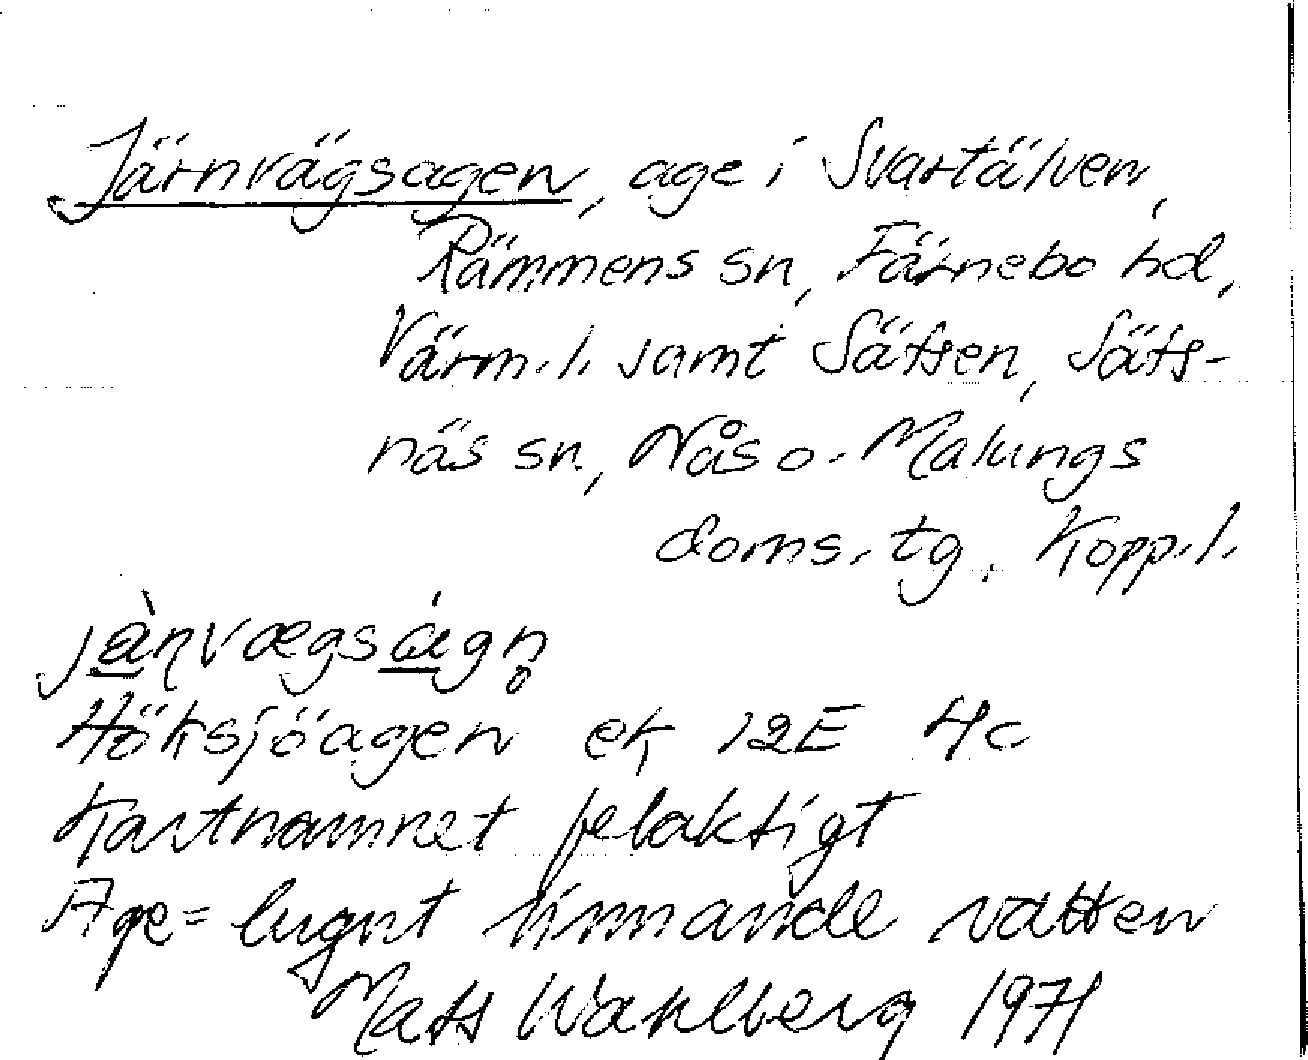 Järnvägsagen, age i Svartälven,
Rämmens sn, Färnebo hd,
Värm.l. samt Sätsen, Säts-
näs sn, Nås o. Malungs
doms. tg. Kopp.l.
jànvægságn̥
Höksjöagen ek 12E 4c
Kartnamnet felaktigt
Age = lugnt rinnande vatten
Mats Wahlberg 1971